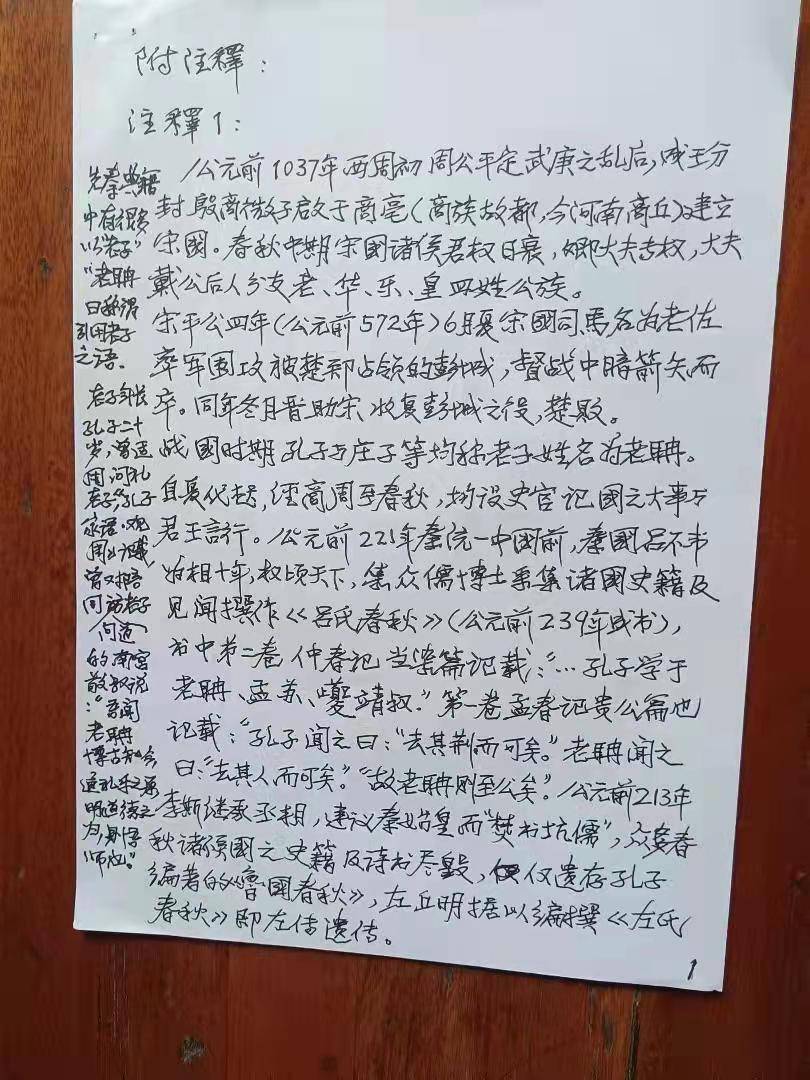 附注釋：
注釋1：
公元前1037年西周初周公平定武庚之乱后，成王分
封殷商微子启于商亳（商族故都，今河南商丘）建立
宋國。春秋中期宋國诸侯君权日衰，卿大夫专权，大夫
戴公后人分支老、华、乐、皇四姓公族。
宋平公四年（公元前572年）6月夏宋國司馬名为老佐
率军围攻被楚部占领的彭城，督战中暗箭矢而
卒。同年冬月晋助宋、收复彭城之役，楚败。
战國时期孔子与庄子等均称老子姓名为老聃。
自夏代起，经商周至春秋，均设史官记國之大事与
君王言行。公元前221年秦统一中國前，秦國吕不韦
始相十年，权倾天下，集众儒博士采集诸國史籍及
见闻撰作《吕氏春秋》（公元前239年成书），
书中第二卷仲春记当染篇记载："…孔子学于
老聃、孟苏、夔靖叔。"第一卷孟春记贵公篇也
记载："孔子闻之曰："去其荆而可矣。"老聃闻之
曰："去其人而可矣。""故老聃则至公矣"。公元前213年
李斯继承丞相，建议秦始皇而"焚书坑儒"，众多春
秋诸侯國之史籍及诗书尽毁，仅遗存孔子
编著的《魯國春秋》，左丘明据以编撰《左氏
春秋》即左传遗传。
先秦典籍
中有很多
以"老子"
"老聃
曰"称谓
引用老子
之语.
老子年长
孔子二十
岁，曾适
周问礼
老子，"孔子
家语·观
周"记载
曾对陪
同访老子
问道
的南宫
敬叔说
："吾闻
老聃
博古知今，
通礼乐之源
明道德之
为，则吾
师也。"
1